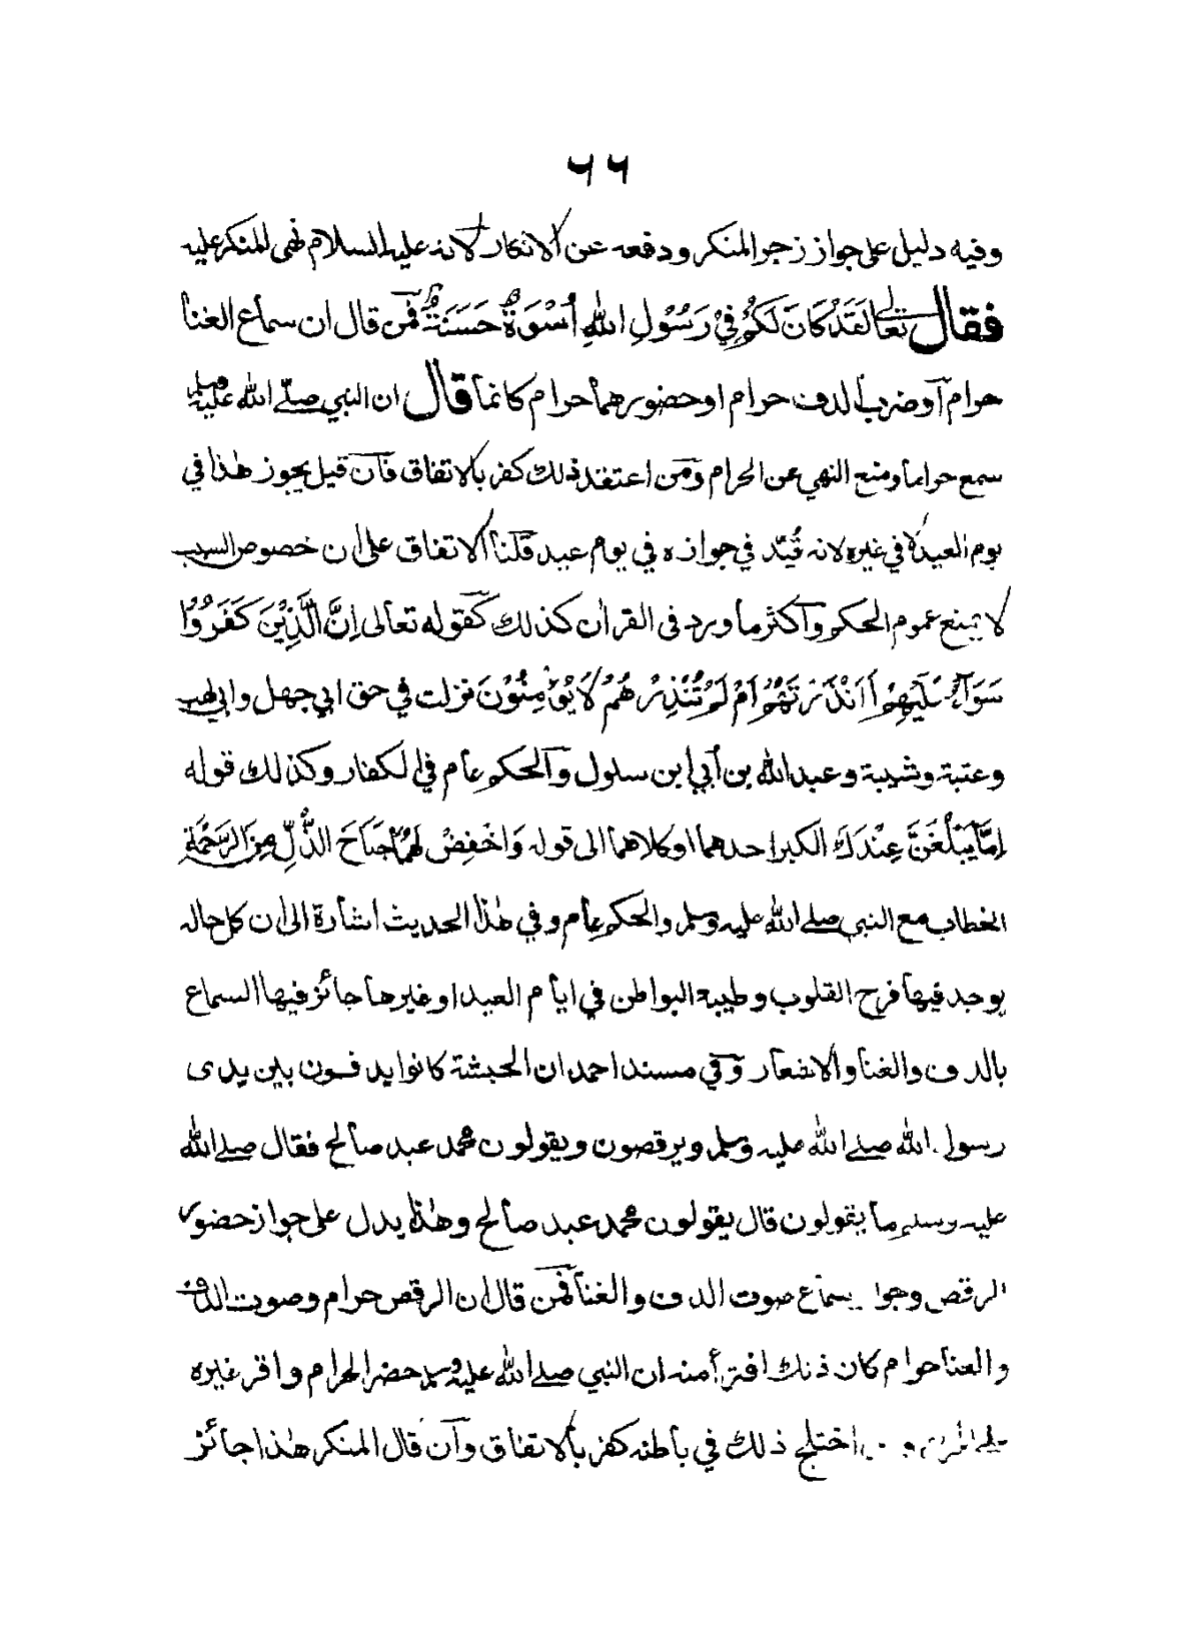 ٦٦
وفيه دليل على جواز زجر المنكر ودفعه عن الانكار لانه عليه السلام نهى المنكر عليه
فقال تعالى لَقَدْ كَانَ لَكُمْ فِيْ رَسُوْلِ اللهِ اُسْوَةٌ حَسَنَةٌ فمن قال ان سماع الغنا
حرام او ضرب الدف حرام او حضورهما حرام كانما قال ان النبي صلى الله عليه وسلم
سمع حراما ومنع النهي عن الحرام ومن اعتقد ذلك كفر بالاتفاق فان قيل يجوز هذا في
يوم العيد لا في غيره لانه قُيّد في جوازه في يوم عيد قلنا الاتفاق على ان خصوص السبب
لا يمنع عموم الحكم واكثر ما ورد فى القران كذلك كقوله تعالى اِنَّ الَّذِيْنَ كَفَرُوْا
سَوَآءٌ عَلَيْهِمْ أَاَنْذَرْتَهُمْ اَمْ لَمْ تُنْذِرْهُمْ لَا يُؤْمِنُوْنَ نزلت في حق ابي جهل وابي لهب
وعتبة وشيبة وعبد الله بن أبي ابن سلول والحكم عام في الكفار وكذلك قوله
اِمَّا يَبْلُغَنَّ عِنْدَكَ الكبر احدهما او كلاهما الى قوله وَاخْفِضْ لَهُمَا جَنَاحَ الذُّلِّ مِنَ الرَّحْمَةِ
الخطاب مع النبي صلى الله عليه وسلم والحكم عام وفي هذا الحديث اشارة الى ان كل حاله
يوجد فيها فرح القلوب وطيبة البواطن في ايام العيد او غيرها جائز فيها السماع
بالدف والغنا والاشعار وفي مسند احمد ان الحبشة كانوا يدفون بين يدى
رسول الله صلى الله عليه وسلم ويرقصون ويقولون محمد عبد صالح فقال صلى الله
عليه وسلم ما يقولون قال يقولون محمد عبد صالح وهذا يدل على جواز حضور
الرقص وجواز سماع صوت الدف والغنا فمن قال ان الرقص حرام وصوت الدف
والغنا حرام كان ذلك افترأ منه ان النبي صلى الله عليه وسلم حضر الحرام واقر غيره
على الحرام و اختلج ذلك في باطنه كفر بالاتفاق وان قال المنكر هذا جائز